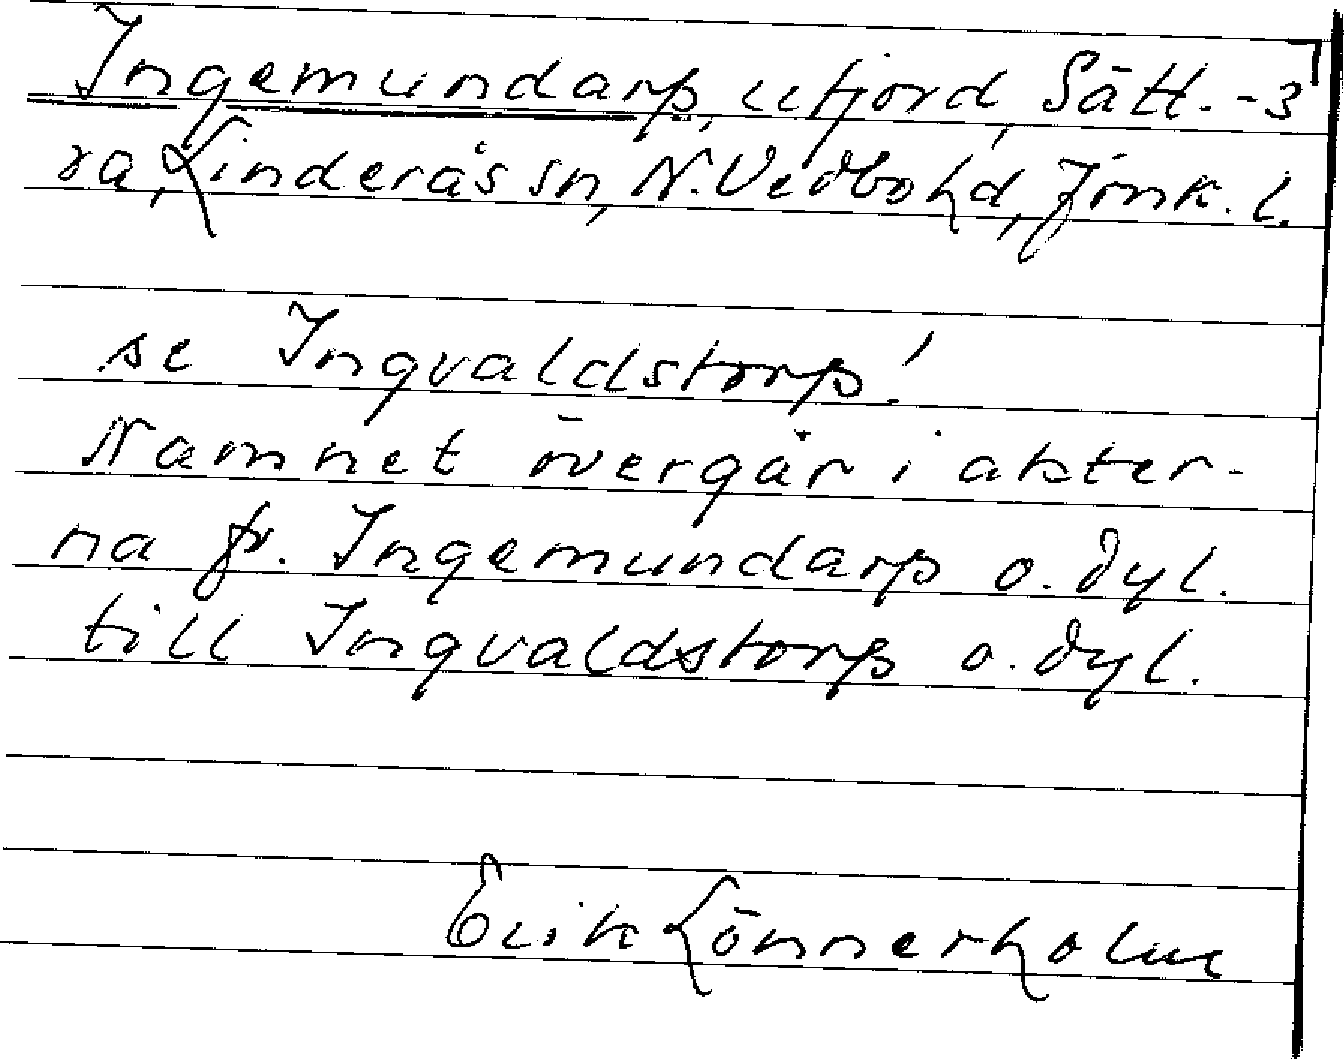 Ingemundarp, utjord, Sätt-
ra, Linderås sn, N. Vedbo hd, Jönk. l.
se Ingvaldstorp!
Namnet övergår i akter-
na fr. Ingemundarp o. dyl.
till Ingvaldstorp o. dyl.
Erik Lönnerholm